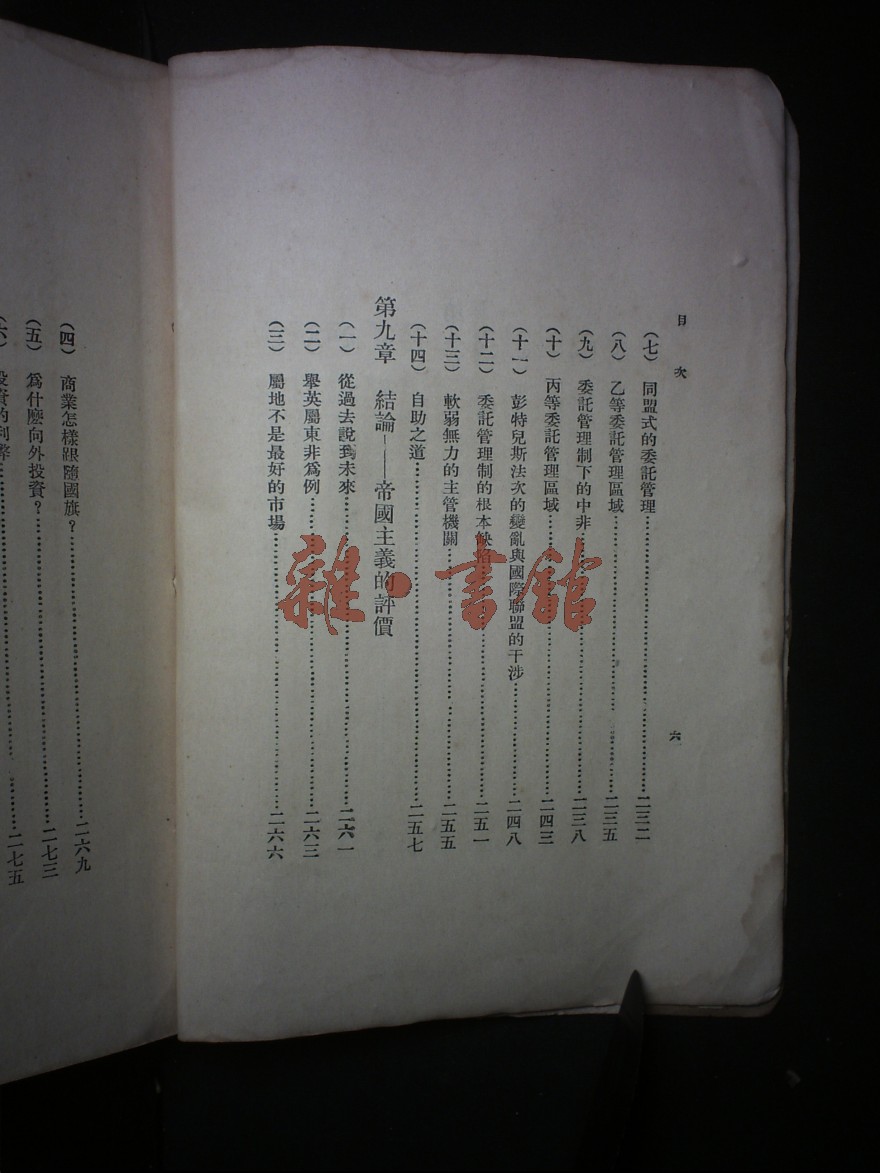 目次
六
（七） 同盟式的委託管理……二三二
（八） 乙等委託管理區域……二三五
（九） 委託管理制下的中非……二三八
（十） 丙等委託管理區域……二四三
（十一） 彭特兒斯法次的變亂與國際聯盟的干涉……二四八
（十二） 委託管理制的根本缺陷……二五一
（十三） 軟弱無力的主管機關……二五五
（十四） 自助之道……二五七
第九章 結論——帝國主義的評價
（一） 從過去說到未來……二六一
（二） 舉英屬東非為例……二六三
（三） 屬地不是最好的市場……二六六
（四） 商業怎樣跟隨國旗？……二六九
（五） 爲什麽向外投資？……二七三
（六） 投資的利弊……二七五
雜·書館